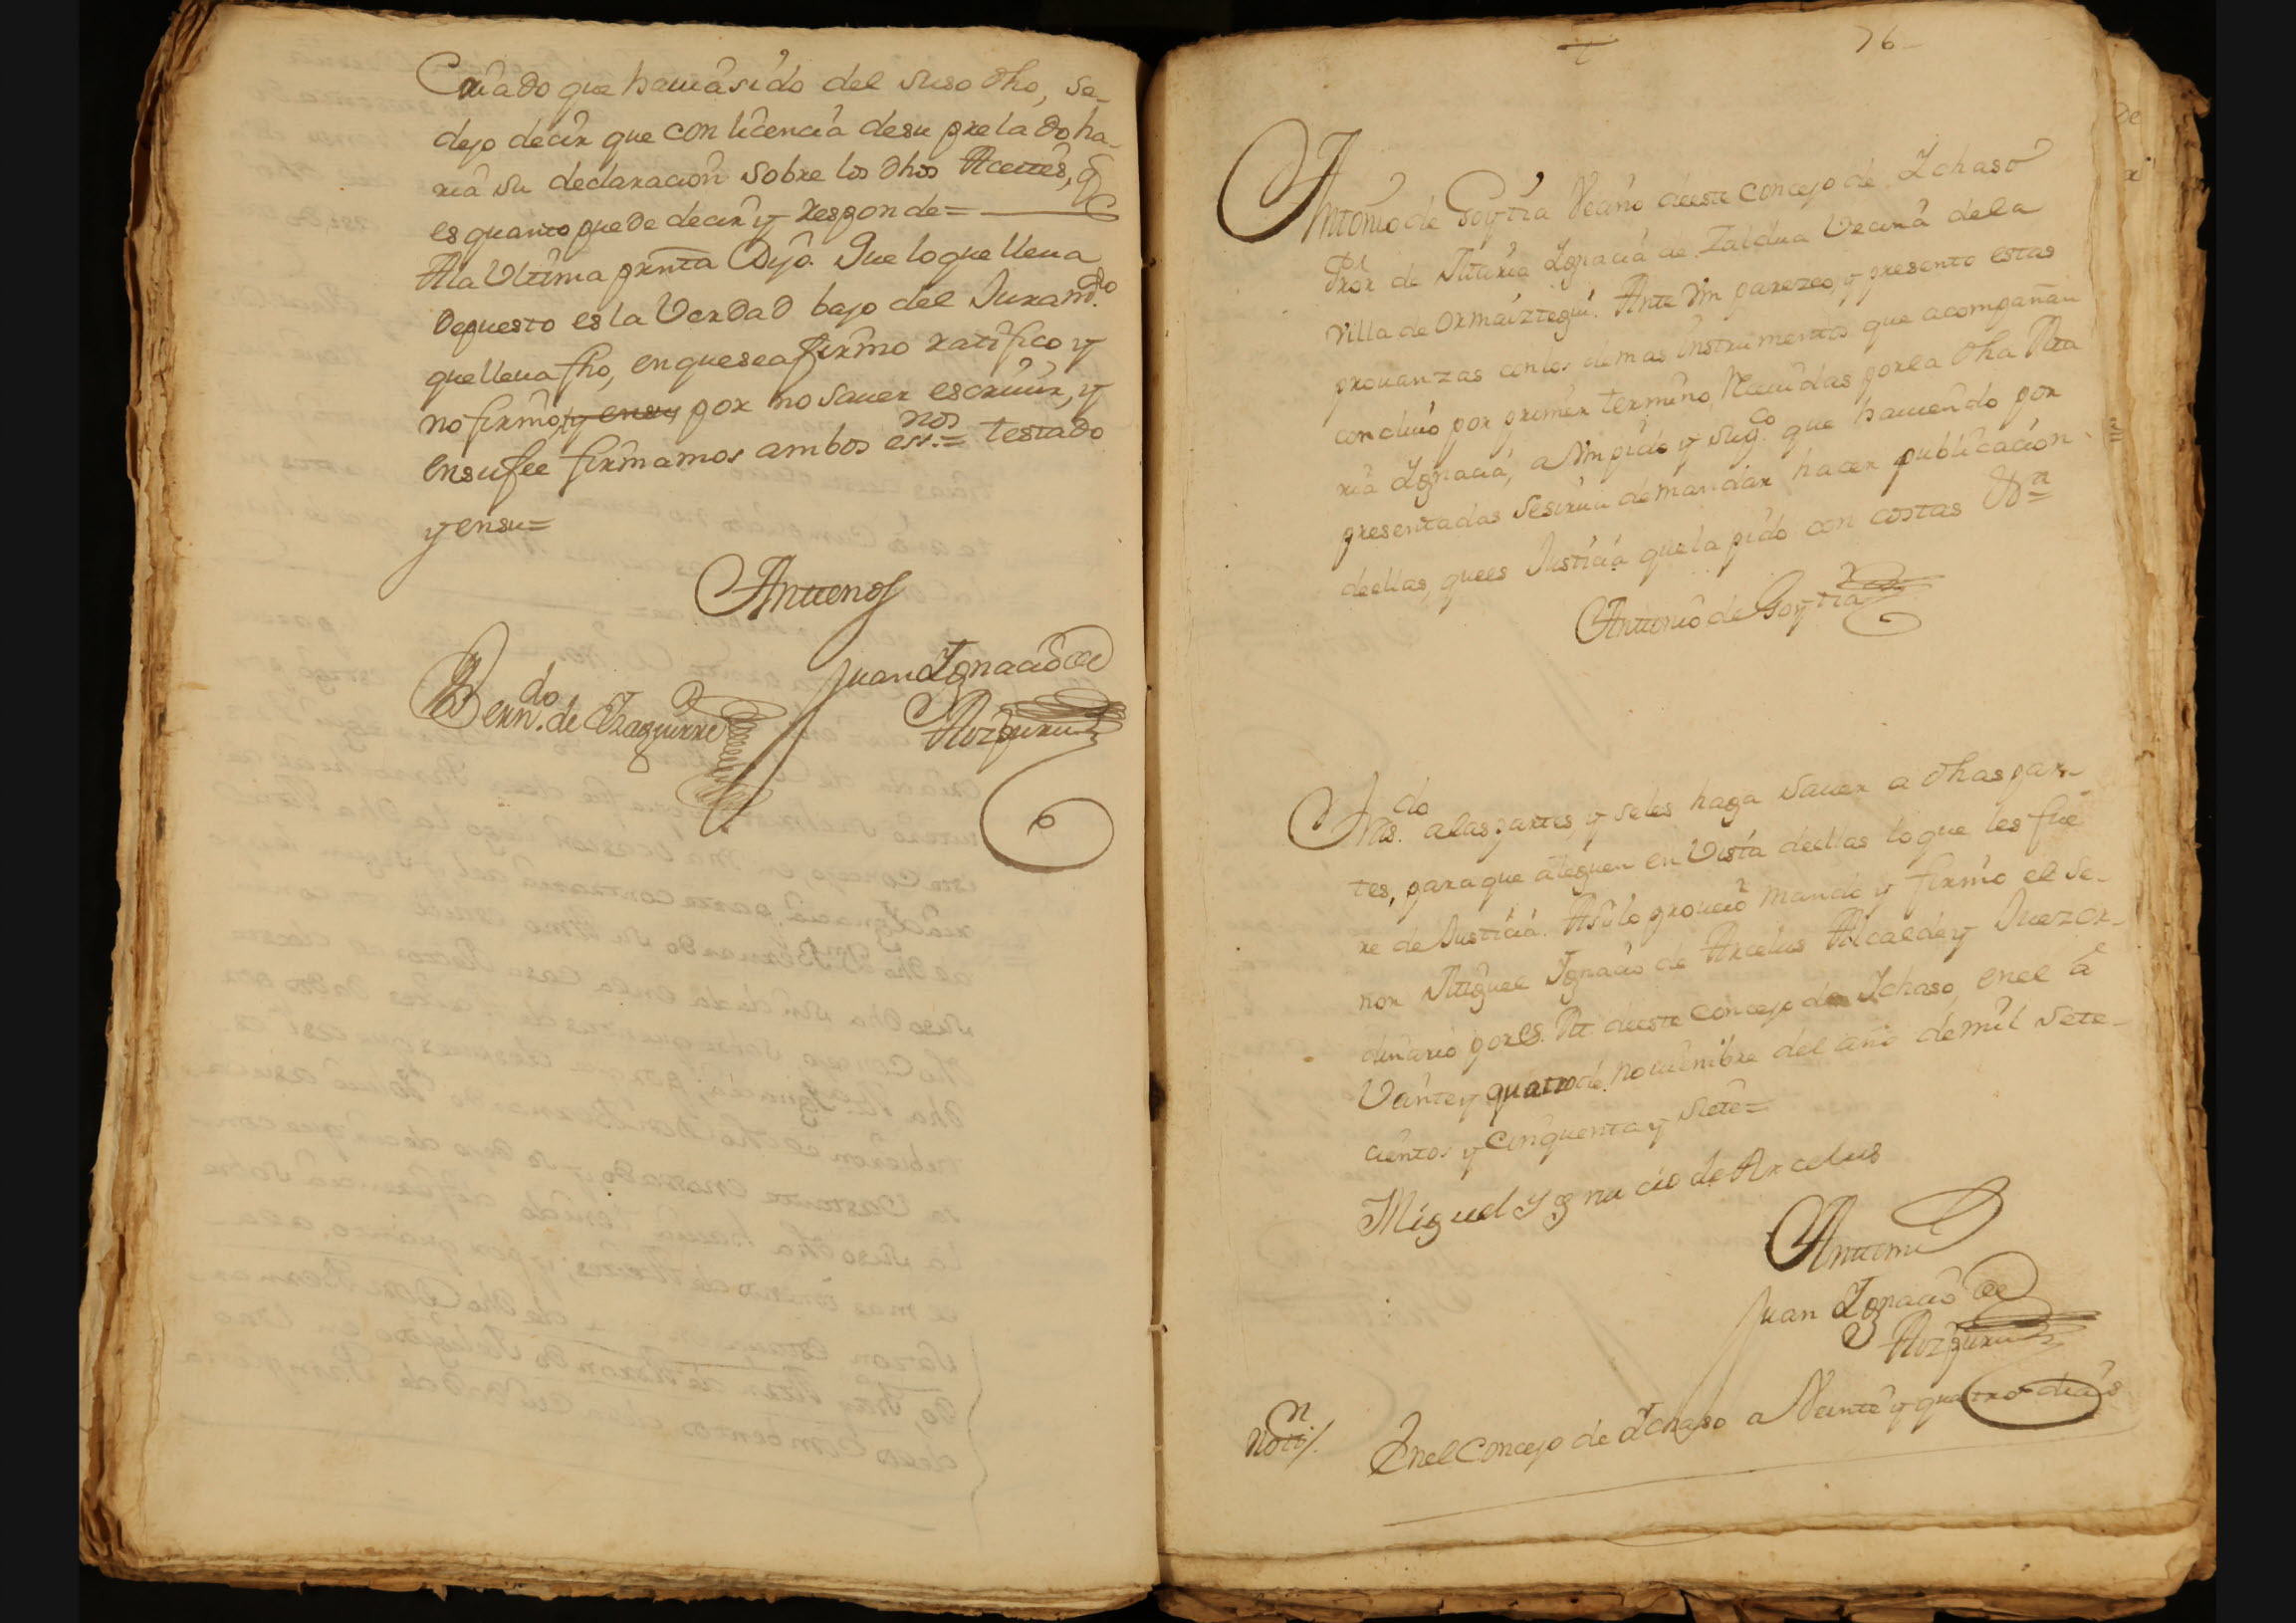 Criado que hauia sido del suso dho, se-
dejo decir que con licencia de su prelado ha-
ria su declaracion sobre los dhos Aceites, q
es quanto puede decir y responde=
Ala Ultima prenta Dijo. Que lo que lleua
depuesto es la Verdad bajo del Juram.do
que lleua fho, en que se afirmo ratifico y
no firmò, y ensu, por no sauer escriuir, y
ensufee firmamos ambos ess.nos= testado
y ensu=
Antenos
Bern.do de Eizaguirre
Juan Ignacio de
Aozguruu
76
Antonio de Goytia Vecino deeste concejo de Ichaso
Pror de Maria Ignacia de Zaldua Vecina dela
Villa de Ormaiztegui. Ante Vm parezco, y presento estas
prouanzas con los demas instrumentos que acompañan
concluió por primer termino, Reciuidas por la dha Ma
ria Ignacia, a Vm pido y sup.co que hauiendo por
presentadas se sirua de mandar hacer publicacion
deellas, que es Justicia que la pido con costas &a=
Antonio de Goytia
Tras.do alas partes, y seles haga sauer a dhas par-
tes, para que aleguen en Vista deellas lo que les fue
re de Justicia. Asilo proueiò mandò y firmò el Se-
ñor Miguel Ignacio de Arcelus Alcalde y Juez or-
dinario por S. M. deeste concejo de Ichaso, en el à
Veinte y quatro de Nouiembre del año de mil sete-
cientos y cinquenta y siete=
Miguel Ygnacio de Arcelus
Antemi
Juan Ignacio de
Aozguruu
Noti.n/.
En el Concejo de Ichaso a Veinte y quatro dias